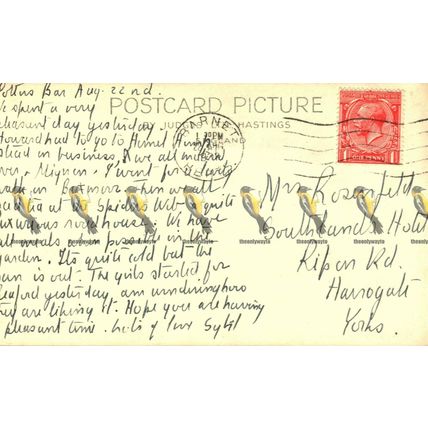 Potters Bar Aug. 22nd.
We spent a very
pleasant day yesterday
had to go to Hemel
on business, & we all
over. Mignon & I went for a lovely
walk in then we all
at the Spiders Web quite
luxurious roadhouse. We have
all meals in the
garden. Its quite cold but the
sun is out. The girls started for
Seaford yesterday, am wondering how
they are liking it. Hope you are having
a pleasant time. Lots of love Sybil
POSTCARD PICTURE
BY JUDGES HASTINGS
BARNET
PM
ONE PENNY
Mrs Rosenfeld
Southland Hotel
Ripon Rd.
Harrogate
Yorks.
theonlywayto
theonlywayto
theonlywayto
theonlywayto
theonlywayto
theonlywayto
theonlywayto